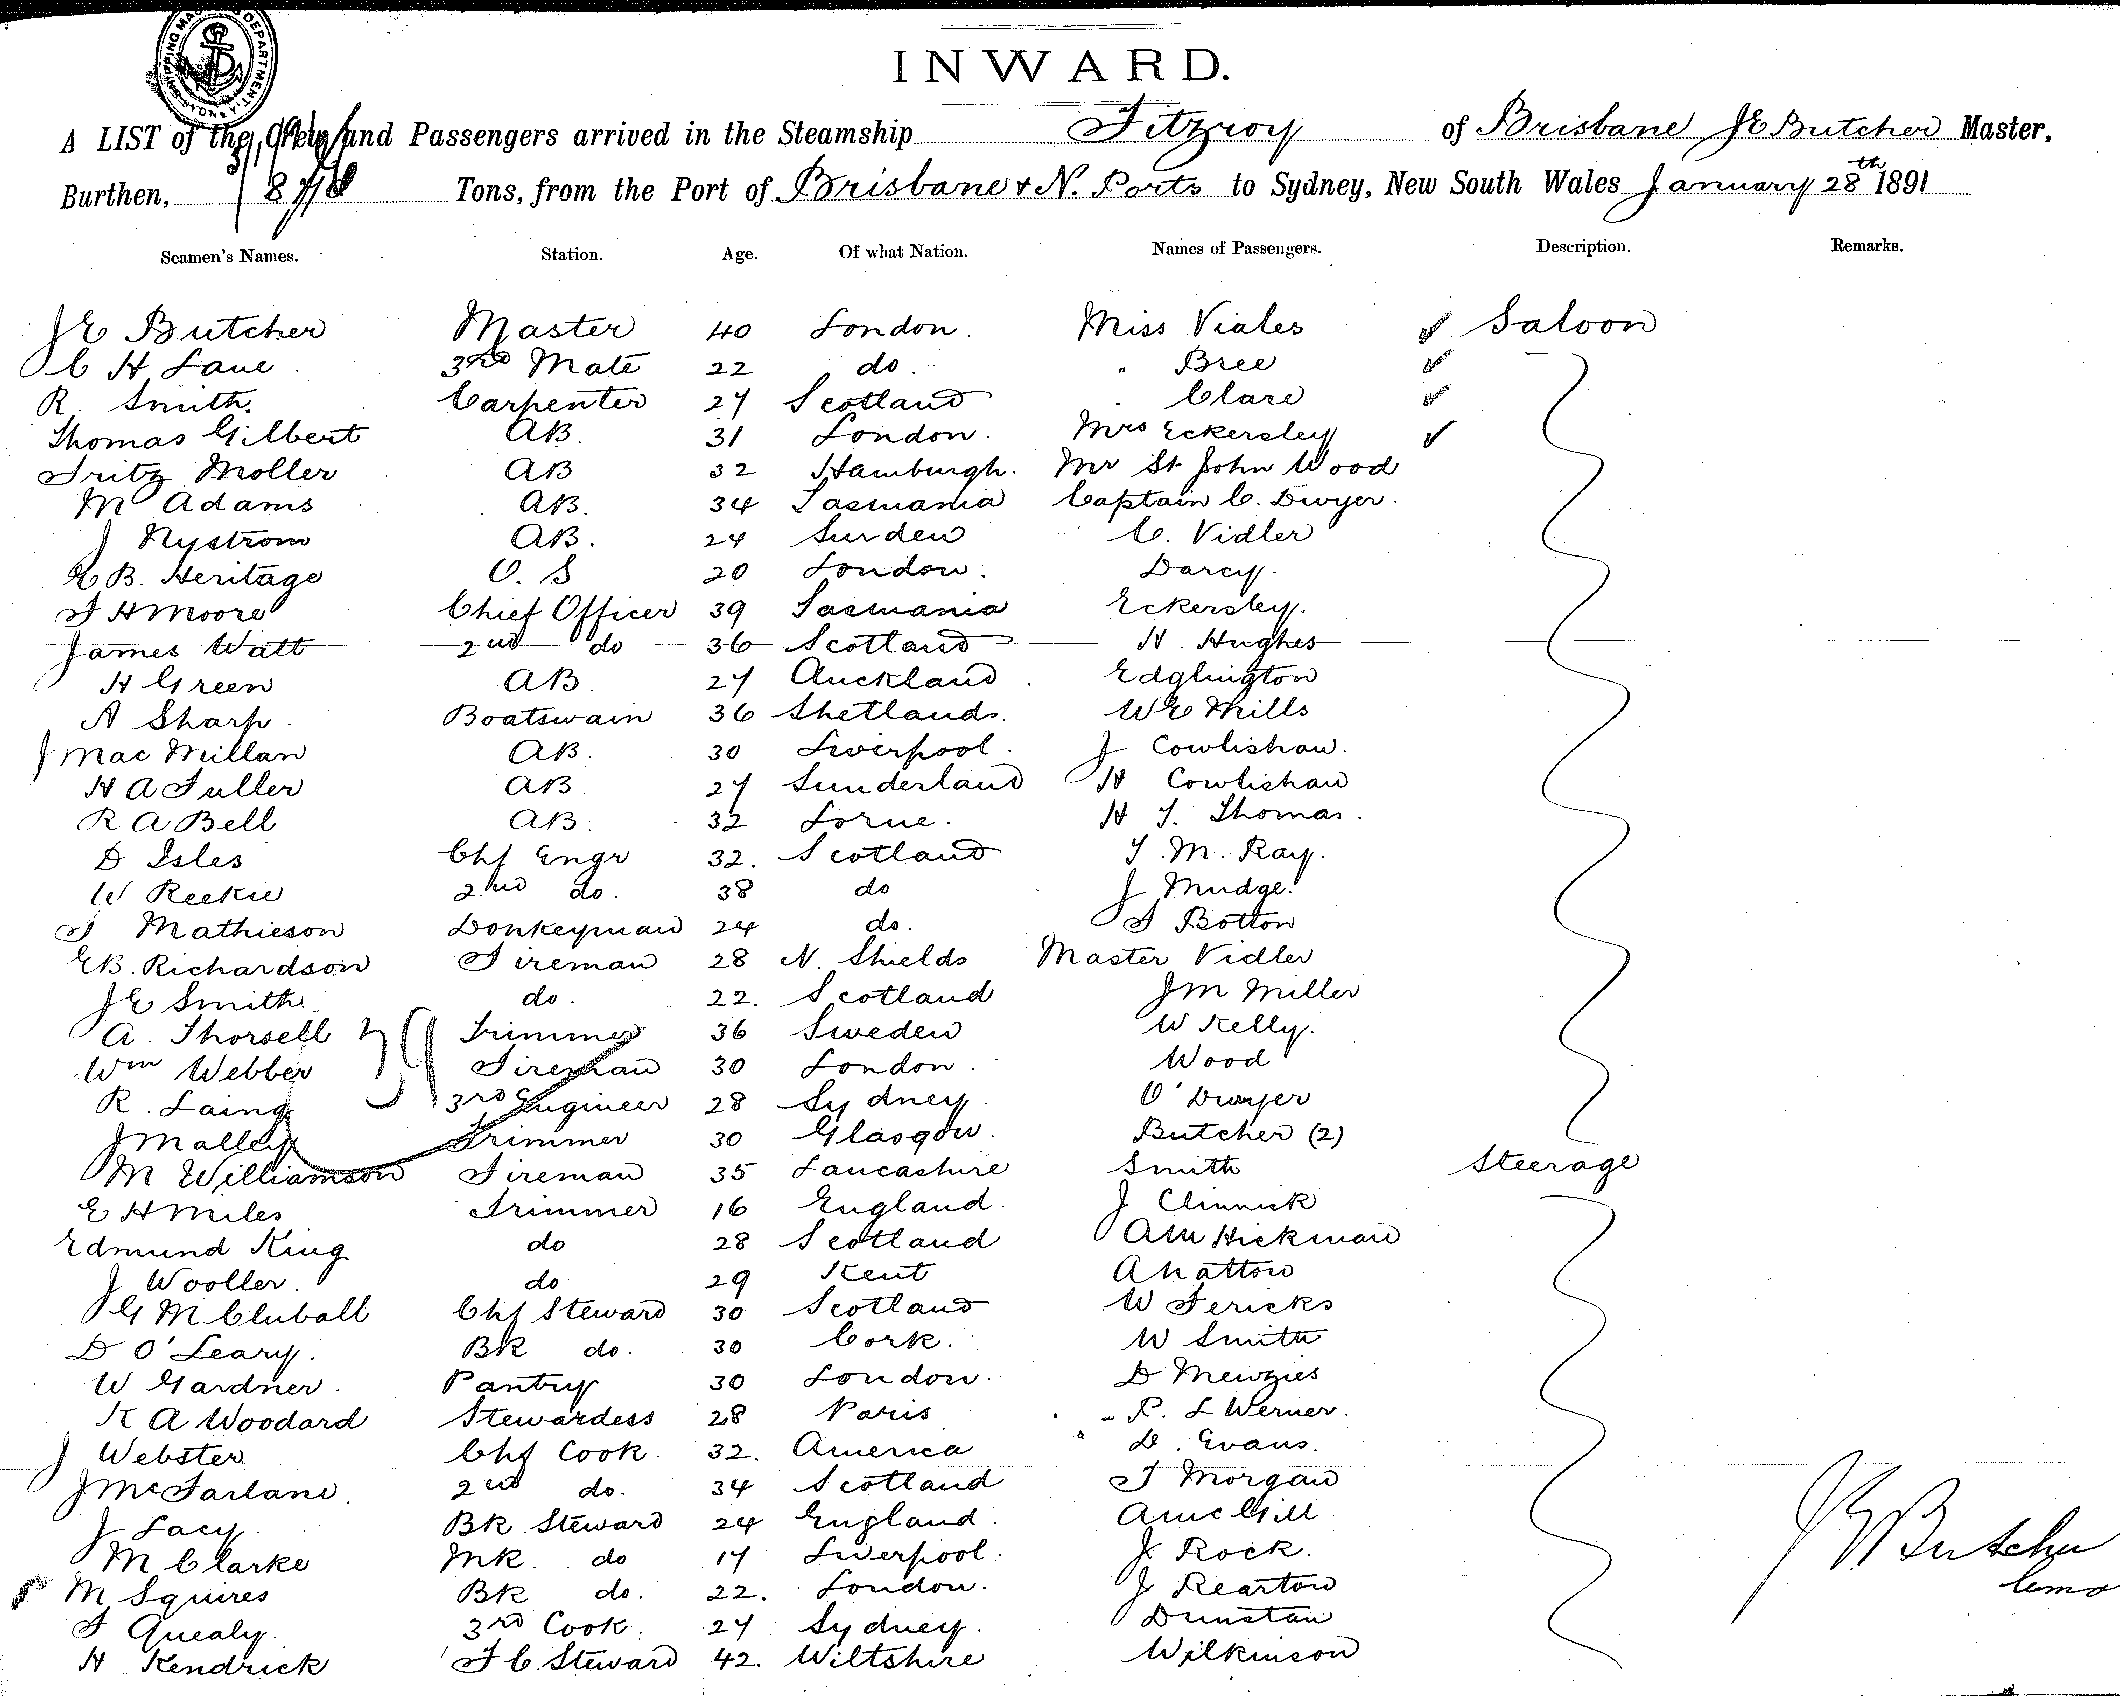 INWARD.
A LIST of the Crew and Passengers arrived in the Steamship Fitzroy of Brisbane J E Butcher Master,
Burthen, Tons, from the Port of Brisbane & N. Ports to Sydney, New South Wales January 28th 1891
Seamen's Names. Station. Age. Of what Nation. Names of Passengers. Description. Remarks.
J E Butcher Master 40 London. Miss Viales ✓ Saloon
C H Lane 3rd Mate 22 do. " Bree ✓
R Smith. Carpenter 27 Scotland " Clare ✓
Thomas Gilbert AB. 31 London. Mrs Eckersley ✓
Fritz Moller AB 32 Hamburgh. Mr St John Wood
M Adams AB. 34 Tasmania Captain C. Dwyer.
J Nystrom AB. 24 Surden C. Vidler
E B. Heritage O. S 20 London. Darcy.
F H Moore Chief Officer 39 Tasmania Eckersley.
James Watt 2nd do 36 Scotland H. Hughes
H Green AB 27 Auckland Edglington
A Sharp Boatswain 36 Shetlands. W E Mills
J Mac Millan AB. 30 Liverpool. J Cowlishaw.
H A Fuller AB 27 Sunderland H Cowlishaw
R A Bell AB. 32 Lorne. H T. Thomas.
D Isles Chf Engr 32. Scotland T. M. Ray.
W Reekie 2nd do. 38 do J Mudge.
F Mathieson Donkeyman 24 do. F Botton
E B. Richardson Fireman 28 N. Shields Master Vidler
J E Smith do. 22. Scotland J M Miller
A. Thorsell Trimmer 36 Sweden W Kelly.
Wm Webber Fireman 30 London. Wood
R. Laing 3rd Engineer 28 Sydney O'Dwyer
J Malley Trimmer 30 Glasgow. Butcher (2)
M Williamson Fireman 35 Lancashire Smith Steerage
E H Miles Trimmer 16 England. J Clinnick
Edmund King do 28 Scotland A M Hickman
J Wooller. do 29 Kent A Hatton
G M Cluball Chf Steward 30 Scotland W Fericks
D O'Leary. BK do. 30 Cork. W Smith
W Gardner. Pantry 30 London. D Menzies
K A Woodard Stewardess 28 Paris " P. L Werner.
J Webster Chf Cook. 32. America D. Evans.
J McFarlane. 2nd do. 34 Scotland T Morgan
J Lacy. BK Steward 24 England. A McGill
M Clarke MK. do 17 Liverpool. J Rock.
M Squires BK do. 22. London. J Rearton
F Quealy. 3rd Cook. 27 Sydney. Dunstan
H Kendrick F C Steward 42. Wiltshire Wilkinson
J E Butcher